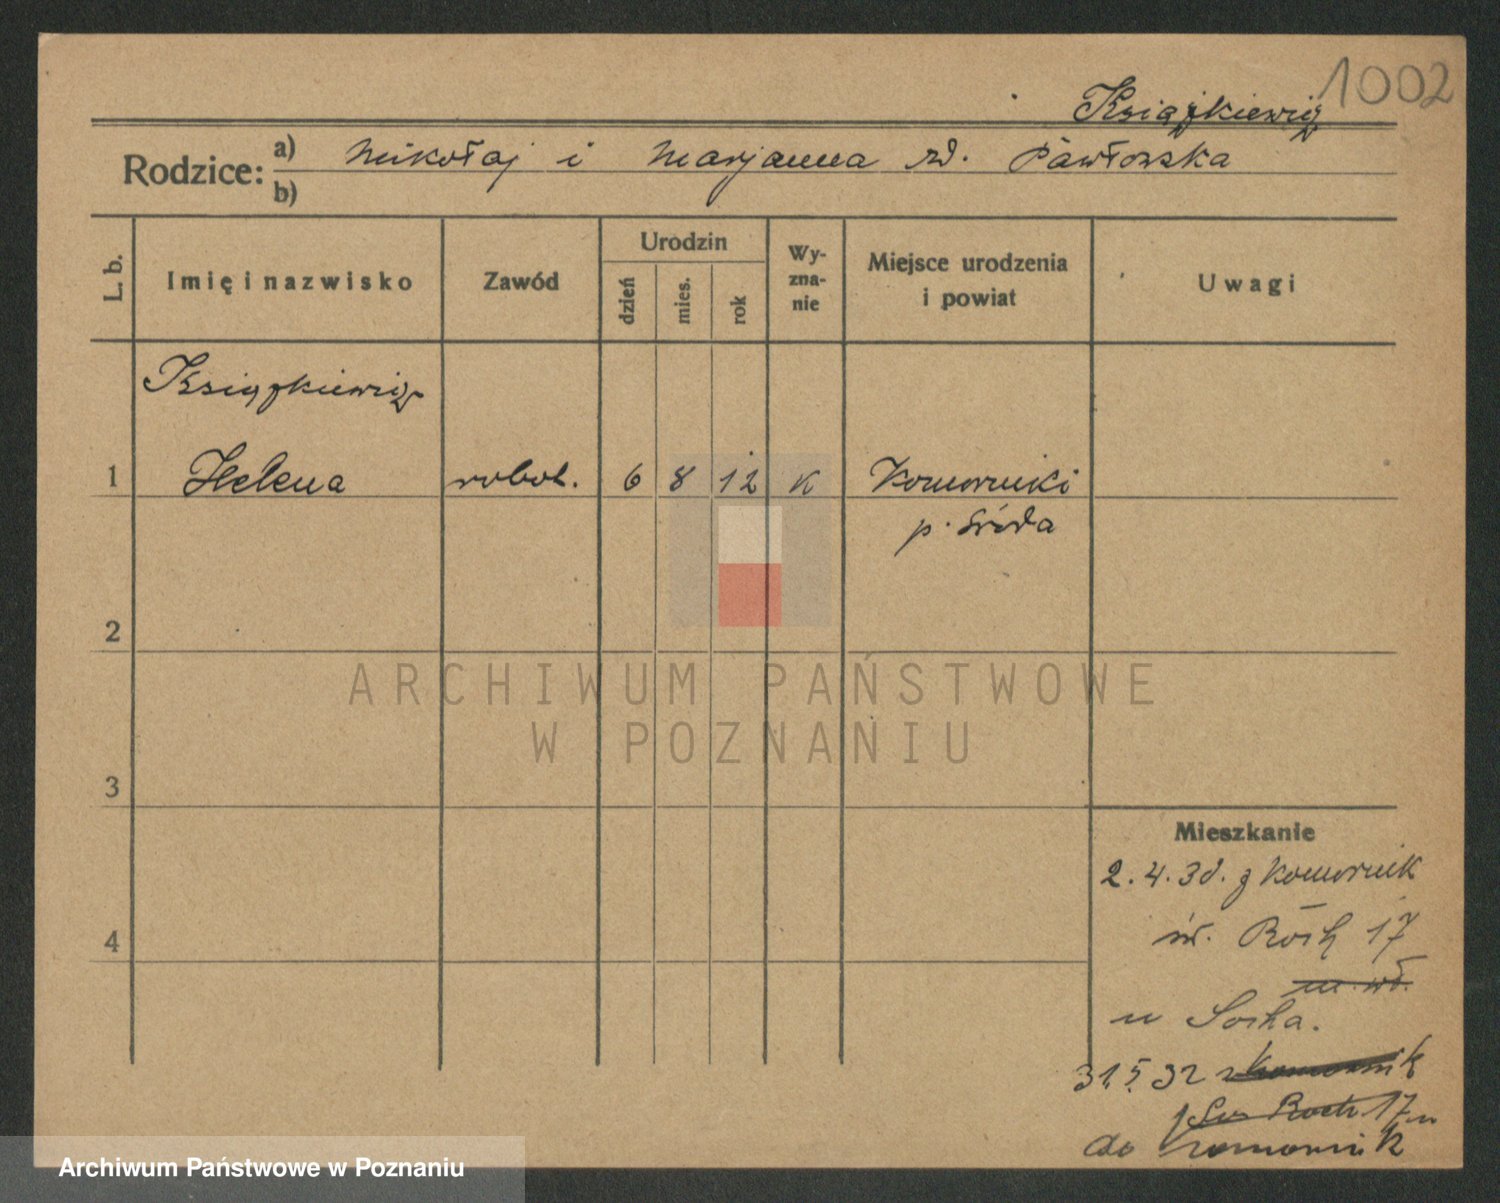 1002
Książkiewicz
Rodzice: a) Mikołaj i Marjanna rd. Pawłowska
b)
L. b.
Imię i nazwisko
Zawód
Urodzin
dzień
mies.
rok
Wy-
zna-
nie
Miejsce urodzenia
i powiat
Uwagi
Książkiewicz
1 Helena robot. 6 8 12 K Komorniki
p. Środa
2
3
4
ARCHIWUM PAŃSTWOWE
W POZNANIU
Mieszkanie
2.4.38. z Komornik
św. Roch 17
u Socha.
31.5.32 z Komornik
Św Roch 17
do Komornik
Archiwum Państwowe w Poznaniu